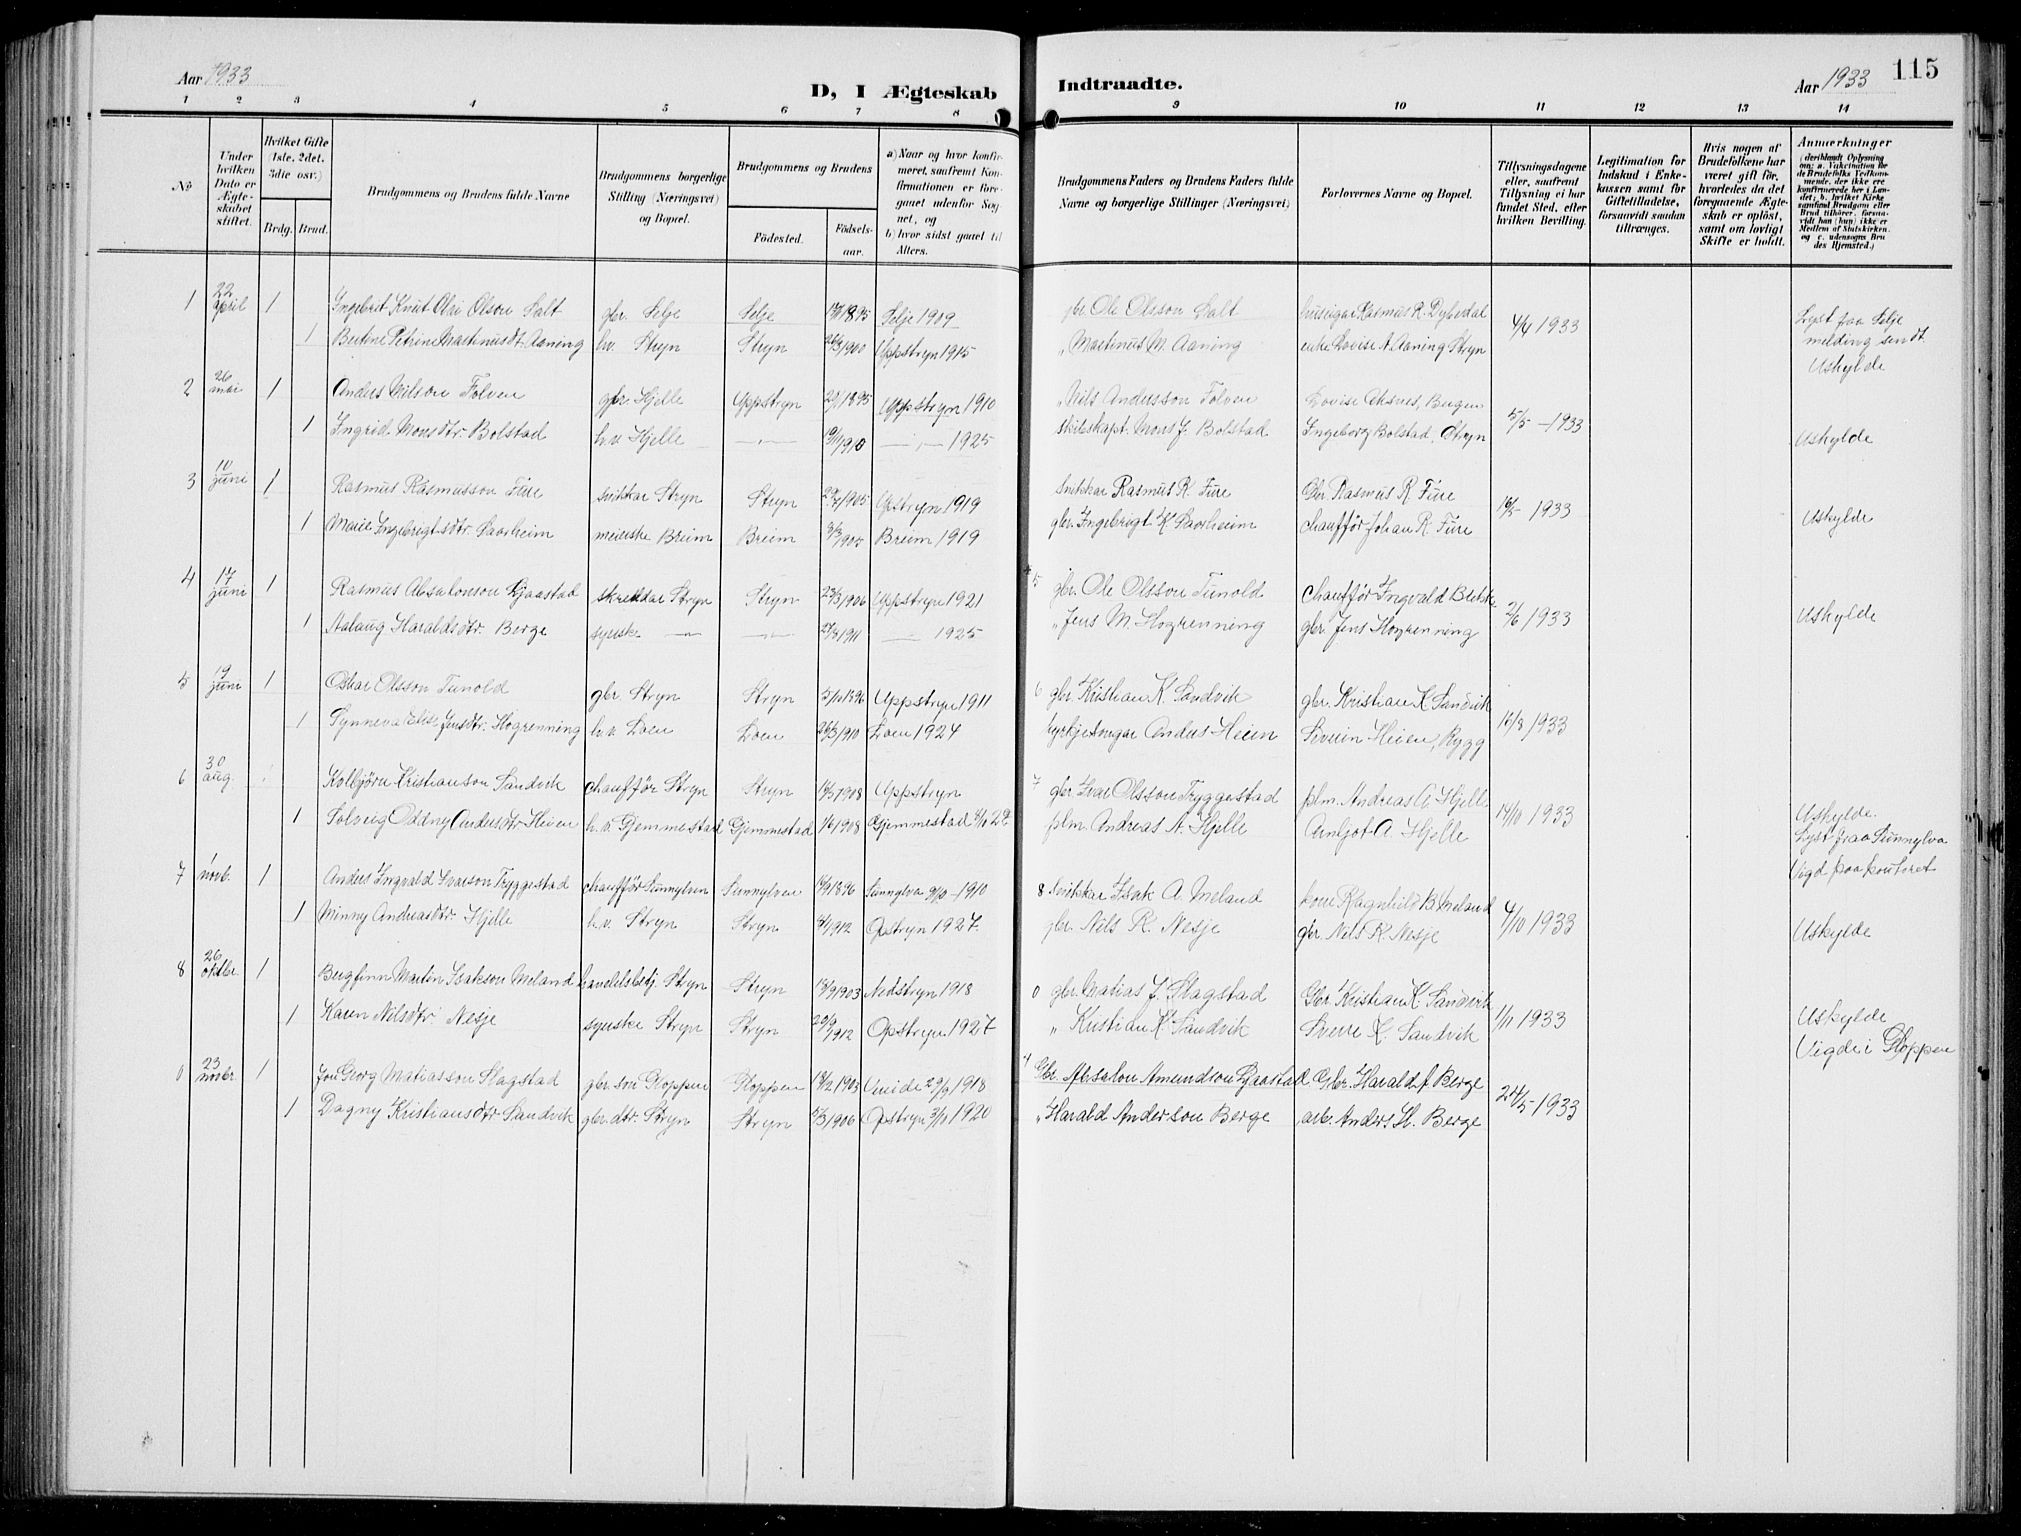 Aar 1933
D, I Ægteskab
Indtraadte.
Aar 1933
115
1 2 3 4 5 6 7 8 9 10 11 12 13 14
No
Under hvilken Dato er Ægteskabet stiftet.
Hvilket Gifte (1ste, 2det, 3die osv.)
Brdg. Brud.
Brudgommens og Brudens fulde Navne
Brudgommens borgerlige Stilling (Næringsvei) og Bopæl.
Brudgommens og Brudens
Födested. Födselsaar.
a) Naar og hvor konfirmeret, saafremt Konfirmationen er foregaaet udenfor Sognet, og
b) hvor sidst gaaet til Alters.
Brudgommens Faders og Brudens Faders fulde Navne og borgerlige Stillinger (Næringsvei)
Forlovernes Navne og Bopæl.
Tillysningsdagene eller, saafremt Tillysning ei har fundet Sted, efter hvilken Bevilling.
Legitimation for Indskud i Enkekassen samt for Giftetilladelse, forsaavidt saadan tiltrænges.
Hvis nogen af Brudefolkene har været gift för, hvorledes da det foregaaende Ægteskab er oplöst, samt om lovligt Skifte er holdt.
Anmærkninger
(deriblandt Oplysning om: a. Vakcination for de Brudefolks Vedkommende, der ikke ere konfirmerede her i Landet; b. hvilket Kirkesamfund Brudgom eller Brud tilhörer, forsaavidt han (hun) ikke er Medlem af Statskirken, og c. udensogns Brudes Hjemsted.)
1 22 april 1 Ingebrit Knut Olai Olson Salt gbr. Selje Selje 1895 Selje 1909 gbr. Ole Olsson Salt huseigar Rasmus R. Dybedal 4/4 1933 Lyst fraa Selje melding sendt
1 Bertine Petrine Martinusdt. Aaning hv. Stryn Stryn 26/3 1900 Uppstryn 1915 " Martinus M. Aaning enke Lovise A. Aaning Stryn Uskylde
2 26 mai 1 Anders Nilson Folven gbr. Hjelle Uppstryn 1895 Uppstryn 1910 " Nils Andersson Folven Lovise Aksnes, Bergen 5/5 - 1933
1 Ingrid Monsdtr. Bolstad h.v. Hjelle —"— 19/1 1910 —"— 1925 skilskapt. Mons J. Bolstad Ingeborg Bolstad, Stryn Uskylde
3 10 juni 1 Rasmus Rasmusson Fure snikkar Stryn Stryn 1905 Upstryn 1919 Snikkar Rasmus R. Fure Gbr. Rasmus R. Fure 16/5 - 1933
1 Marie Ingebrigtsdtr. Saarheim meierske Breim Breim 1905 Breim 1919 gbr. Ingebrigt K. Saarheim chauffør Johan R. Fure Uskylde
4 17 juni 1 Rasmus Absalonson Gjaastad skreddar Stryn Stryn 23/3 1906 Uppstryn 1921 5 gbr. Ole Olsson Tunold chauffør Ingvald 2/6 1933
1 Aslaug Haraldsdtr. Berge syerske — —"— 1911 — 1925 " Jens M. Hogrenning gbr. Jens Hogrenning Uskylde
5 19 juni 1 Oskar Olsson Tunold gbr Stryn Stryn 3/10 1896 Uppstryn 1911 6 gbr. Kristian K. Sandvik gbr. Kristian K. Sandvik 15/8 1933
1 Synneva Elise Jensdtr. Hogrenning h.v. Loen Loen 26/3 1910 Loen 1924 kyrkjesongar Anders Heien Severin Heien, Rygg
6 30 aug. Kolbjørn Kristianson Sandvik chauffør Stryn Stryn 1908 Uppstryn 7 gbr Ivar Olsson Tryggestad plm. Andreas A. Hjelle 14/10 1933 Uskylde.
1 Solveig Oddny Andersdtr Heien h.v. Gjemmestad Gjemmestad 1908 Gjemmestad plm. Andreas A. Hjelle Arnljot A. Hjelle Lyst fraa Sunnylva
7 1 novb. 1 Anders Ingvald Ivarson Tryggestad chauffør Sunnylven Sunnylven 1896 Sunnylva 9/10 - 1910 8 Snikkar Isak A. Meland kone Ragnhild B. Meland 4/10 1933 Vigd paa kontoret
1 Minny Andreasdtr. Hjelle h.v. Stryn Stryn 1912 Opstryn 1927. gbr. Nils R. Nesje gbr. Nils R. Nesje Uskylde
8 26 oktbr. 1 Bergfinn Marton Isakson Meland handelsbetj. Stryn Stryn 18/9 1903 Nedstryn 1918 0 gbr. Matias J. Slagstad Gbr. Kristian K. Sandvik 1/11 1933
1 Karen Nilsdtr Nesje syerske Stryn Stryn 29/9 1912 Opstryn 1927 " Kristian K. Sandvik Sverre K. Sandvik Uskylde Vigde i Gloppen
0 23 novbr. 1 Jon Georg Matiasson Slagstad gbr. son Gloppen Gloppen 18/2 1903 29/9 1918 4 Gbr. Absalon Amundson Gjaastad Gbr. Harald A. Berge 24/5 - 1933
1 Dagny Kristiansdtr Sandvik gbr. dtr. Stryn Stryn 1906 Opstryn 3/10 1920 " Harald Anderson Berge arb. Anders H. Berge